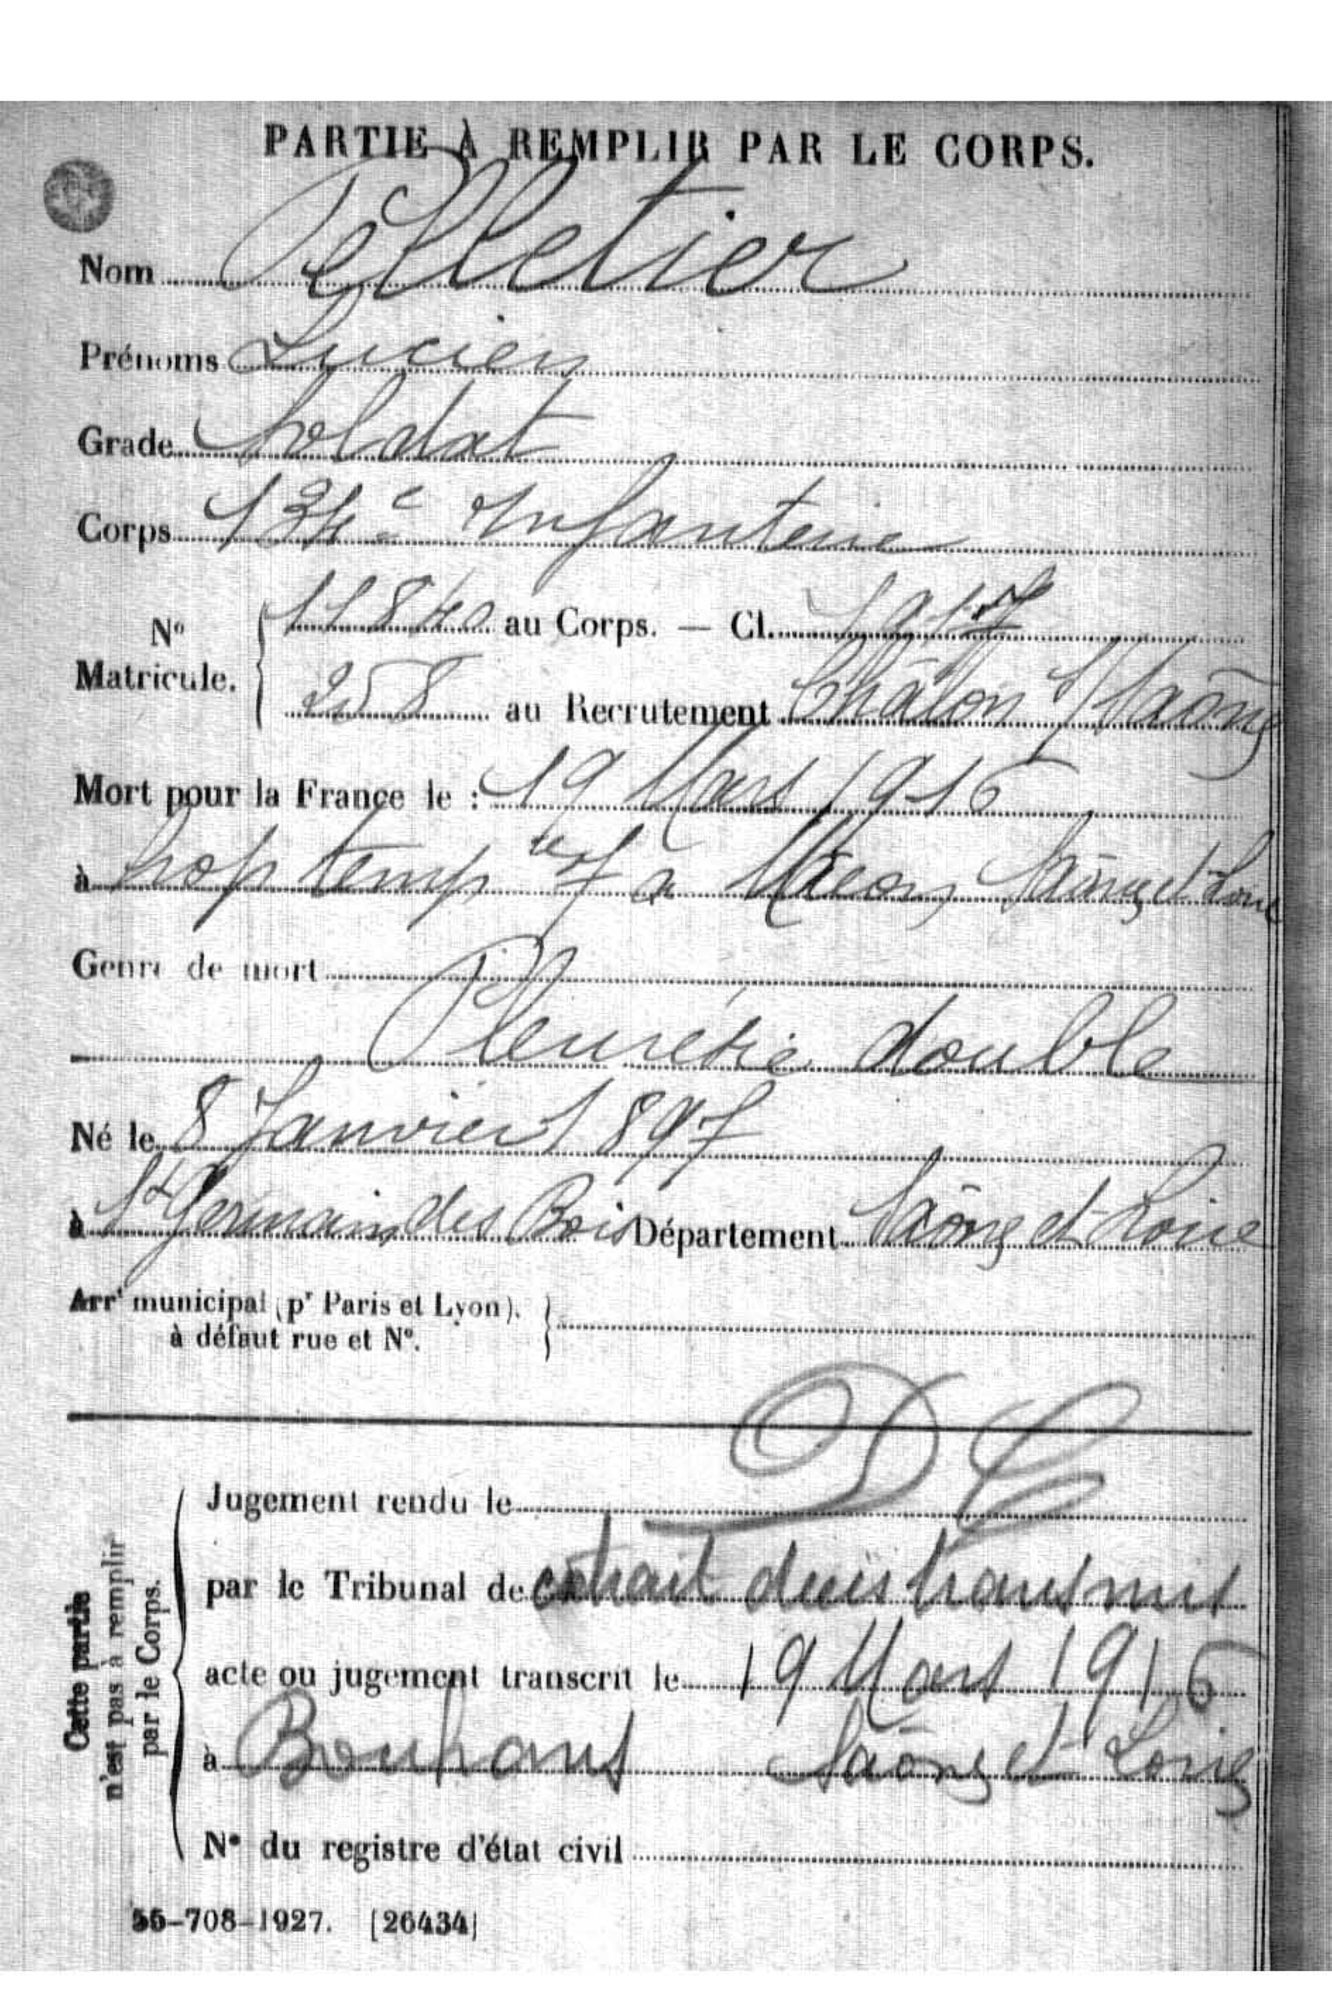 PARTIE À REMPLIR PAR LE CORPS.
Nom Pelletier
Prénoms Lucien
Grade Soldat
Corps 134e Infanterie
No Matricule. { 11840 au Corps. — Cl. 1917
258 au Recrutement Châlon s/Saône
Mort pour la France le : 19 Mars 1916
à hop tempre 7 a Mâcon Saône et Loire
Genre de mort
Pleurésie double
Né le 8 Janvier 1897
à St Germain des Bois Département Saône et Loire
Arrt municipal (pr Paris et Lyon), }
à défaut rue et No.
DC
Cette partie
n'est pas à remplir
par le Corps.
Jugement rendu le
par le Tribunal de extrait decès transmis
acte ou jugement transcrit le 19 Mars 1916
à Bouhans Saône et Loire
No du registre d'état civil
55-708-1927. [26434]